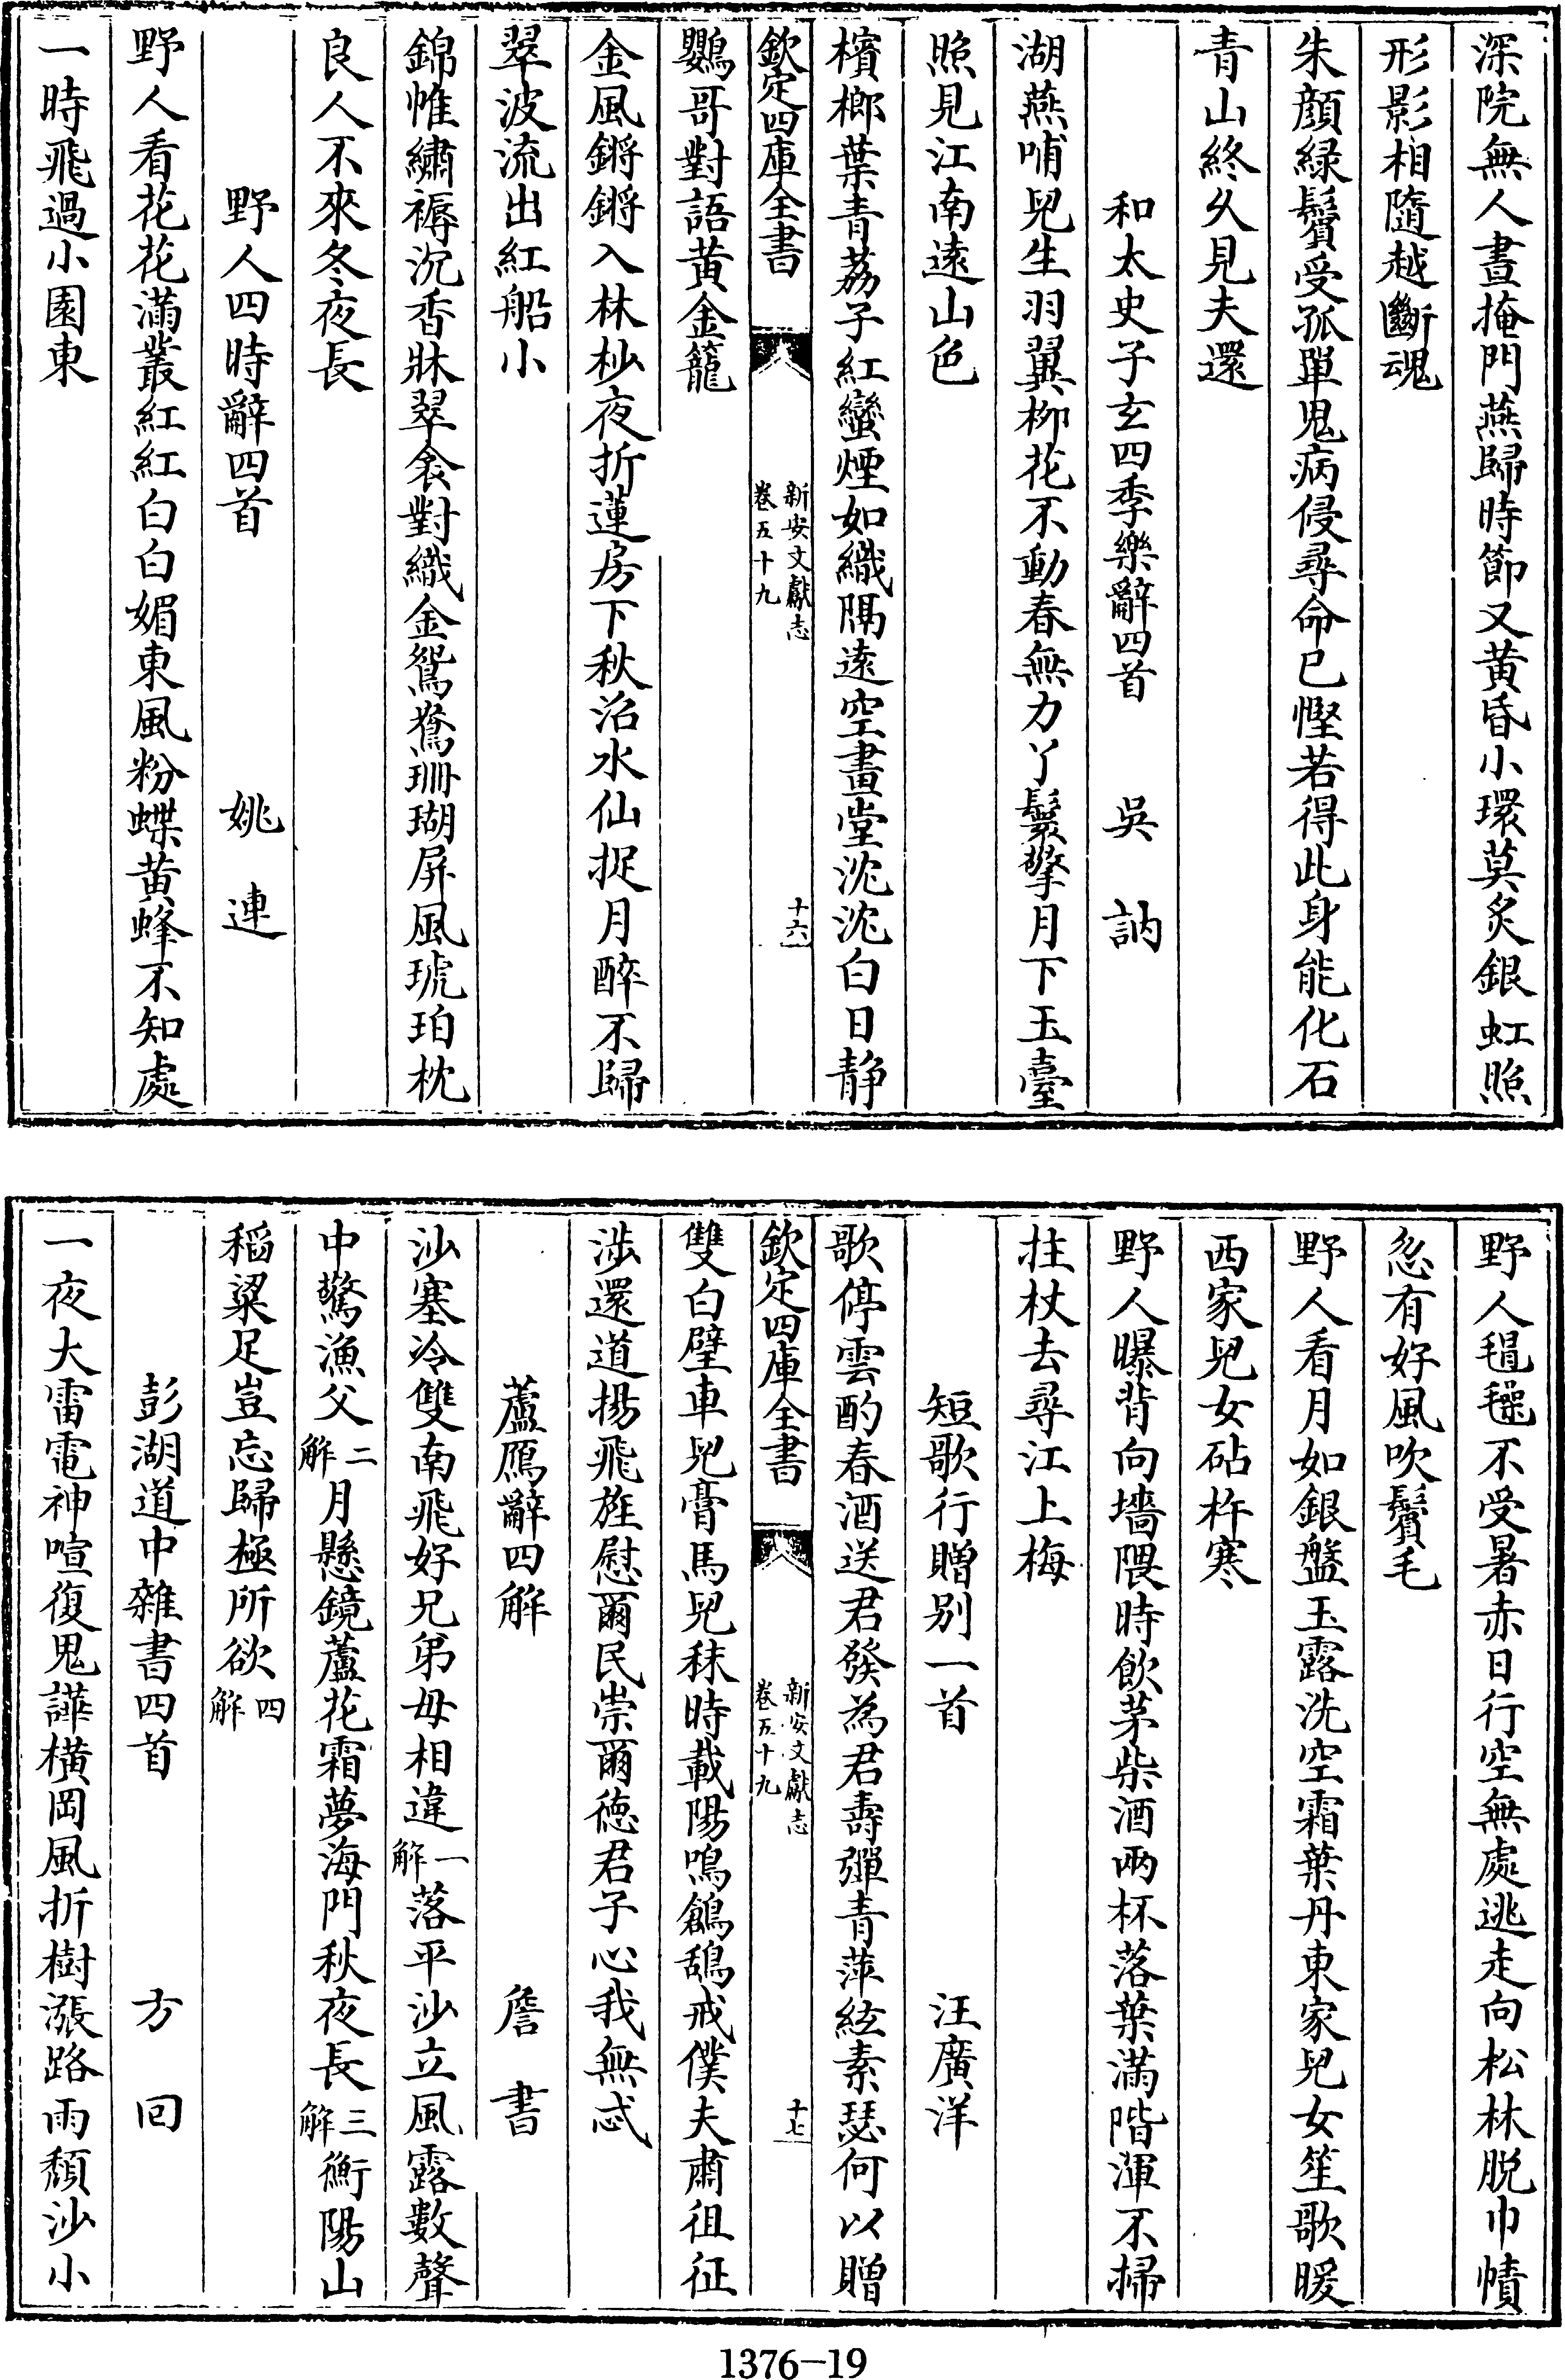 深院無人晝掩門燕歸時節又黄昏小環莫炙銀虹照
形影相隨越斷魂
朱顔緑鬢受孤單鬼病侵尋命已慳若得此身能化石
青山終久見夫還
和太史子玄四季樂辭四首　吳訥
湖燕哺兒生羽翼柳花不動春無力丫鬟擎月下玉臺
照見江南遠山色
檳榔葉青荔子紅蠻煙如織隔遠空畫堂沈沈白日静
欽定四庫全書　新安文獻志卷五十九　十六
鸚哥對語黄金籠
金風鏘鏘入林杪夜折蓮房下秋沼水仙捉月醉不歸
翠波流出紅船小
錦帷繡褥沉香牀翠衾對織金鴛鴦珊瑚屏風琥珀枕
良人不來冬夜長
野人四時辭四首　姚連
野人看花花滿叢紅紅白白媚東風粉蝶黄蜂不知處
一時飛過小園東
野人𣰽𣰆不受暑赤日行空無處逃走向松林脱巾幘
忽有好風吹鬢毛
野人看月如銀盤玉露洗空霜葉丹東家兒女笙歌暖
西家兒女砧杵寒
野人曝背向墻隈時飲茅柴酒兩杯落葉滿階渾不掃
拄杖去尋江上梅
短歌行贈别一首　汪廣洋
歌停雲酌春酒送君發為君壽彈青萍絃素瑟何以贈
欽定四庫全書　新安文獻志卷五十九　十七
雙白璧車兒膏馬兒秣時載陽鳴鶬鴰戒僕夫肅徂征
涉還道揚飛旌慰爾民崇爾徳君子心我無忒
蘆鴈辭四解　詹書
沙塞冷雙南飛好兄弟毋相違一解落平沙立風露數聲
中驚漁父二解月懸鏡蘆花霜夢海門秋夜長三解衡陽山
稻粱足豈忘歸極所欲四解
彭湖道中雜書四首　方回
一夜大雷電神喧復鬼譁横岡風折樹漲路雨頽沙小
1376-19